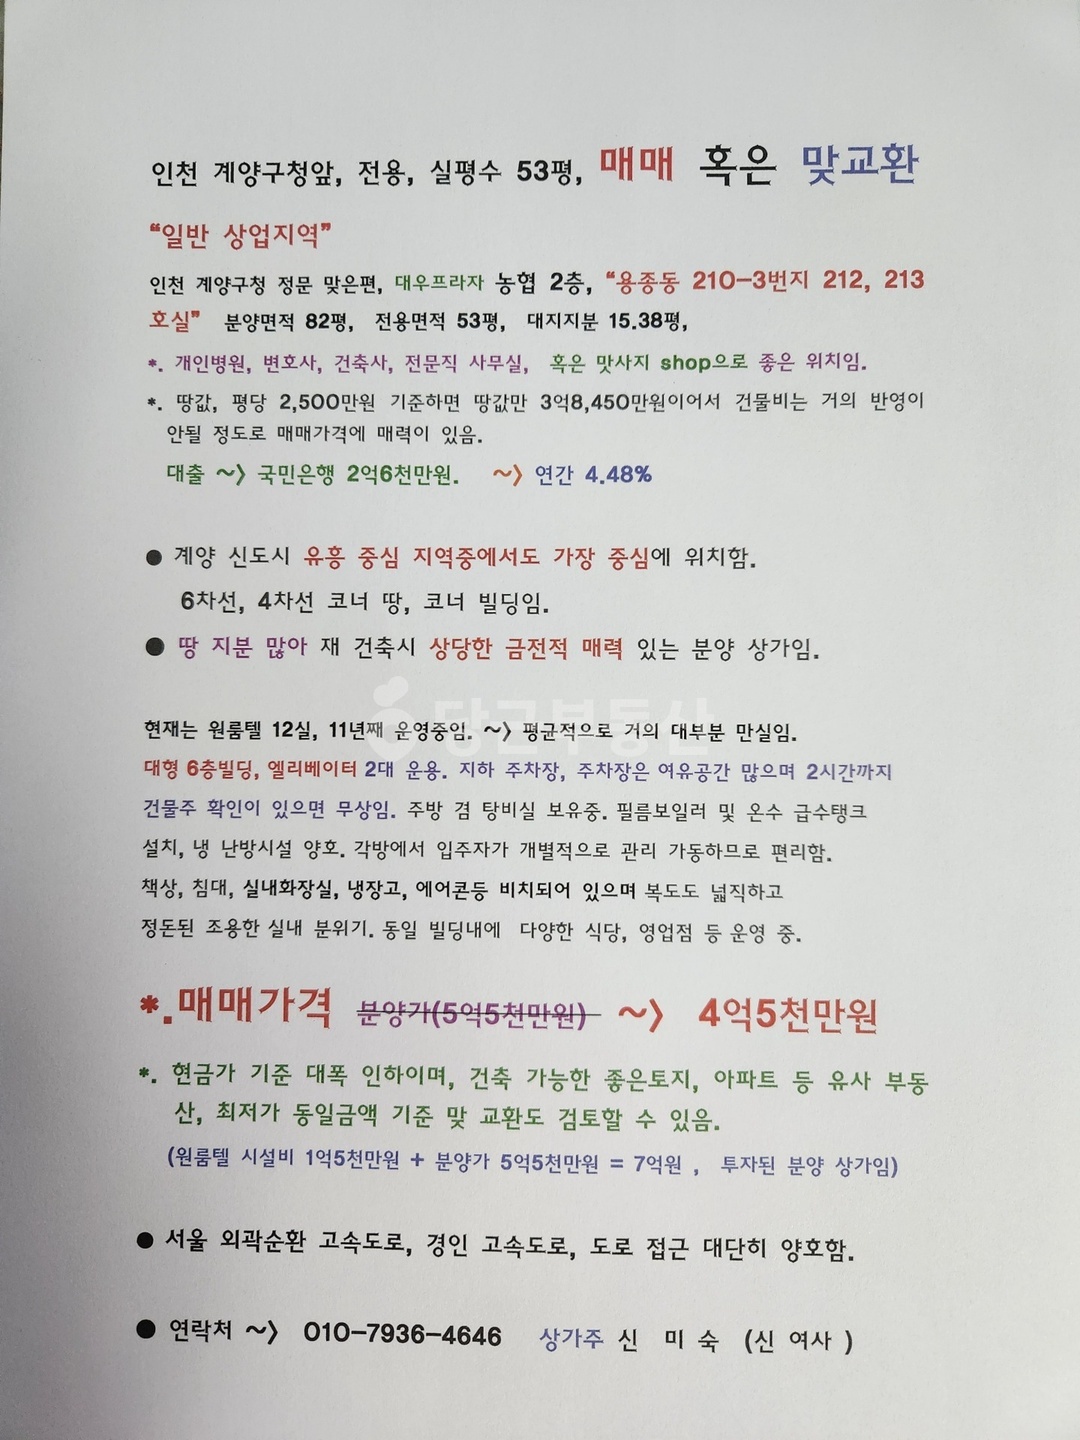 인천 계양구청앞, 전용, 실평수 53평, 매매 혹은 맞교환
“일반 상업지역”
인천 계양구청 정문 맞은편, 대우프라자 농협 2층, “용종동 210-3번지 212, 213
호실” 분양면적 82평, 전용면적 53평, 대지지분 15.38평,
*. 개인병원, 변호사, 건축사, 전문직 사무실, 혹은 맛사지 shop으로 좋은 위치임.
*. 땅값, 평당 2,500만원 기준하면 땅값만 3억8,450만원이어서 건물비는 거의 반영이
안될 정도로 매매가격에 매력이 있음.
대출 ~> 국민은행 2억6천만원. ~> 연간 4.48%
● 계양 신도시 유흥 중심 지역중에서도 가장 중심에 위치함.
6차선, 4차선 코너 땅, 코너 빌딩임.
● 땅 지분 많아 재 건축시 상당한 금전적 매력 있는 분양 상가임.
당근부동산
현재는 원룸텔 12실, 11년째 운영중임. ~> 평균적으로 거의 대부분 만실임.
대형 6층빌딩, 엘리베이터 2대 운용. 지하 주차장, 주차장은 여유공간 많으며 2시간까지
건물주 확인이 있으면 무상임. 주방 겸 탕비실 보유중. 필름보일러 및 온수 급수탱크
설치, 냉 난방시설 양호. 각방에서 입주자가 개별적으로 관리 가동하므로 편리함.
책상, 침대, 실내화장실, 냉장고, 에어콘등 비치되어 있으며 복도도 넓직하고
정돈된 조용한 실내 분위기. 동일 빌딩내에 다양한 식당, 영업점 등 운영 중.
*. 매매가격 분양가(5억5천만원) ~> 4억5천만원
*. 현금가 기준 대폭 인하이며, 건축 가능한 좋은토지, 아파트 등 유사 부동
산, 최저가 동일금액 기준 맞 교환도 검토할 수 있음.
(원룸텔 시설비 1억5천만원 + 분양가 5억5천만원 = 7억원 , 투자된 분양 상가임)
● 서울 외곽순환 고속도로, 경인 고속도로, 도로 접근 대단히 양호함.
● 연락처 ~> 010-7936-4646 상가주 신 미 숙 (신 여사 )